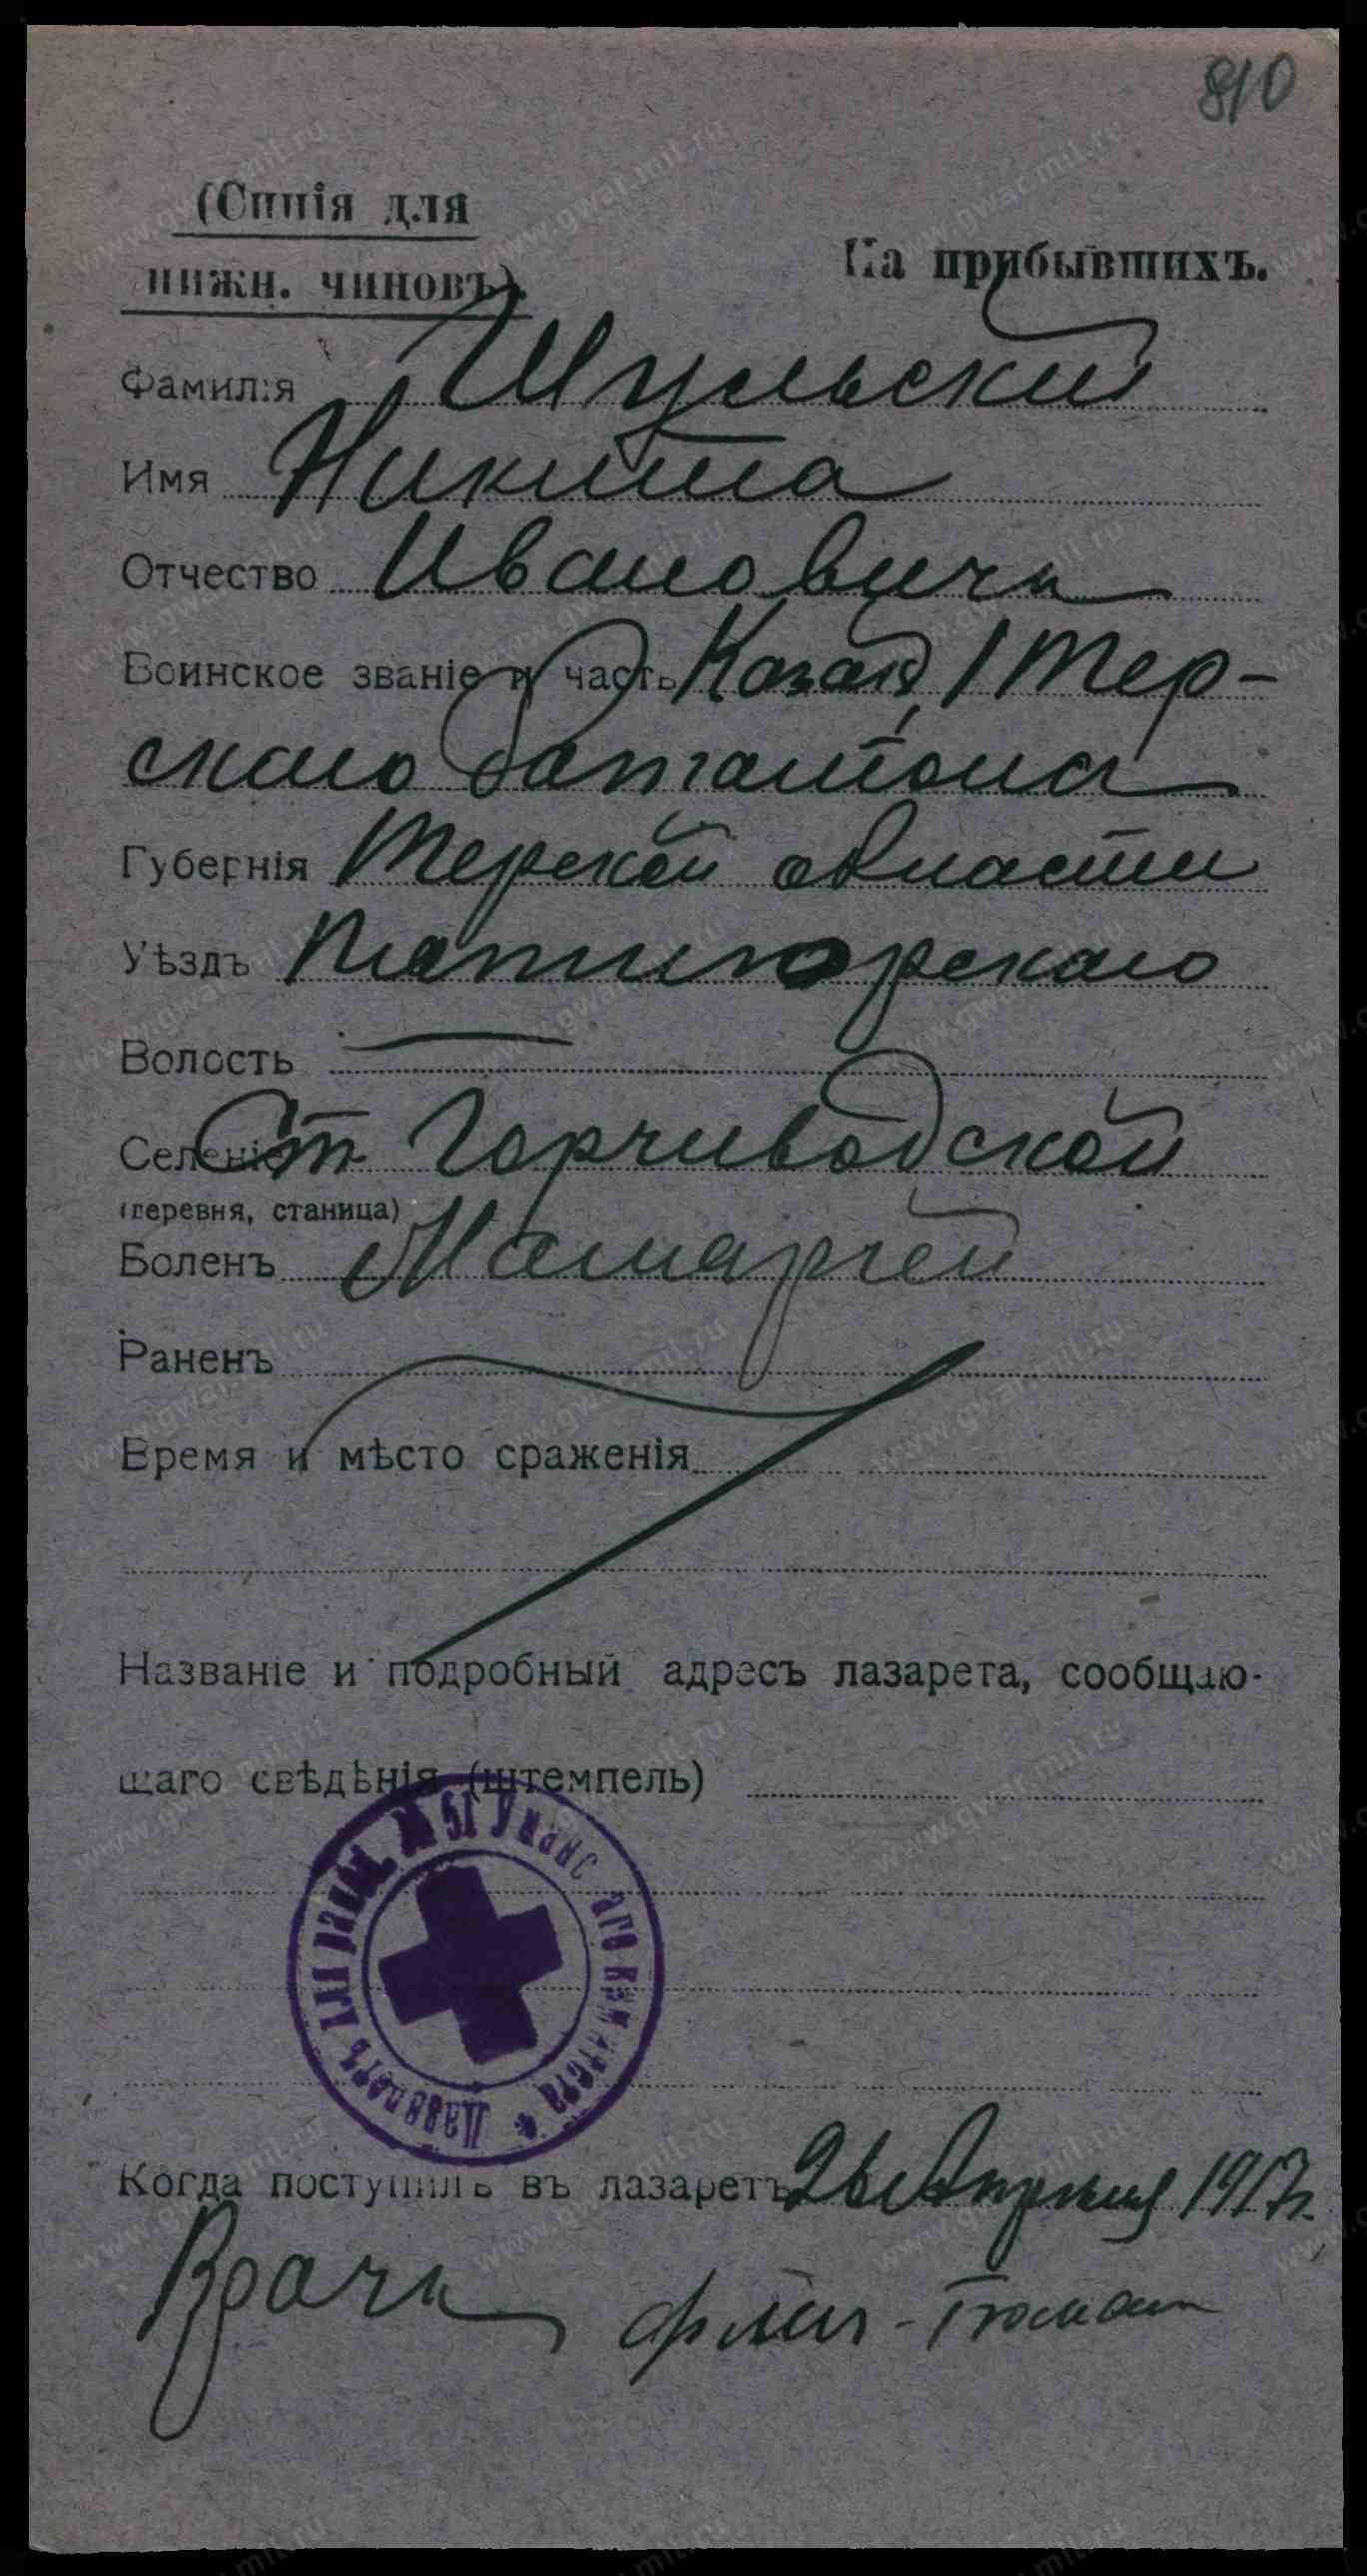 810
(Синія для
нижн. чиновъ).
На прибывшихъ.
Фамилія Шульский
Имя Никита
Отчество Ивановичъ
Воинское званіе и часть Казакъ, 1 Тер-
скаго баталіона
Губернія Терской области
Уѣздъ Пятигорскаго
Волость —
Селеніе Ст. Горчиводской
(деревня, станица)
Боленъ Маляріей
Раненъ
Время и мѣсто сраженія
Названіе и подробный адресъ лазарета, сообщаю-
щаго свѣдѣнія (штемпель)
Лазаретъ для ран. № 51 Уманс аго комитета *
Когда поступилъ въ лазаретъ 26 Апрѣля 1917 г.
Врачъ